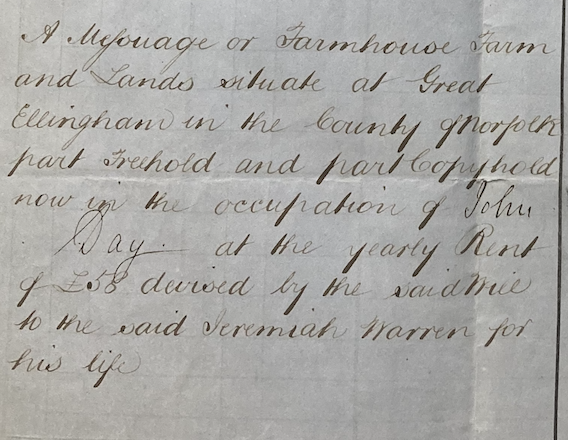 A Messuage or Farmhouse Farm
and Lands situate at Great
Ellingham in the County of Norfolk
part Freehold and part Copyhold
now in the occupation of John
Day at the yearly Rent
of £58 devised by the said Will
to the said Jeremiah Warren for
his life